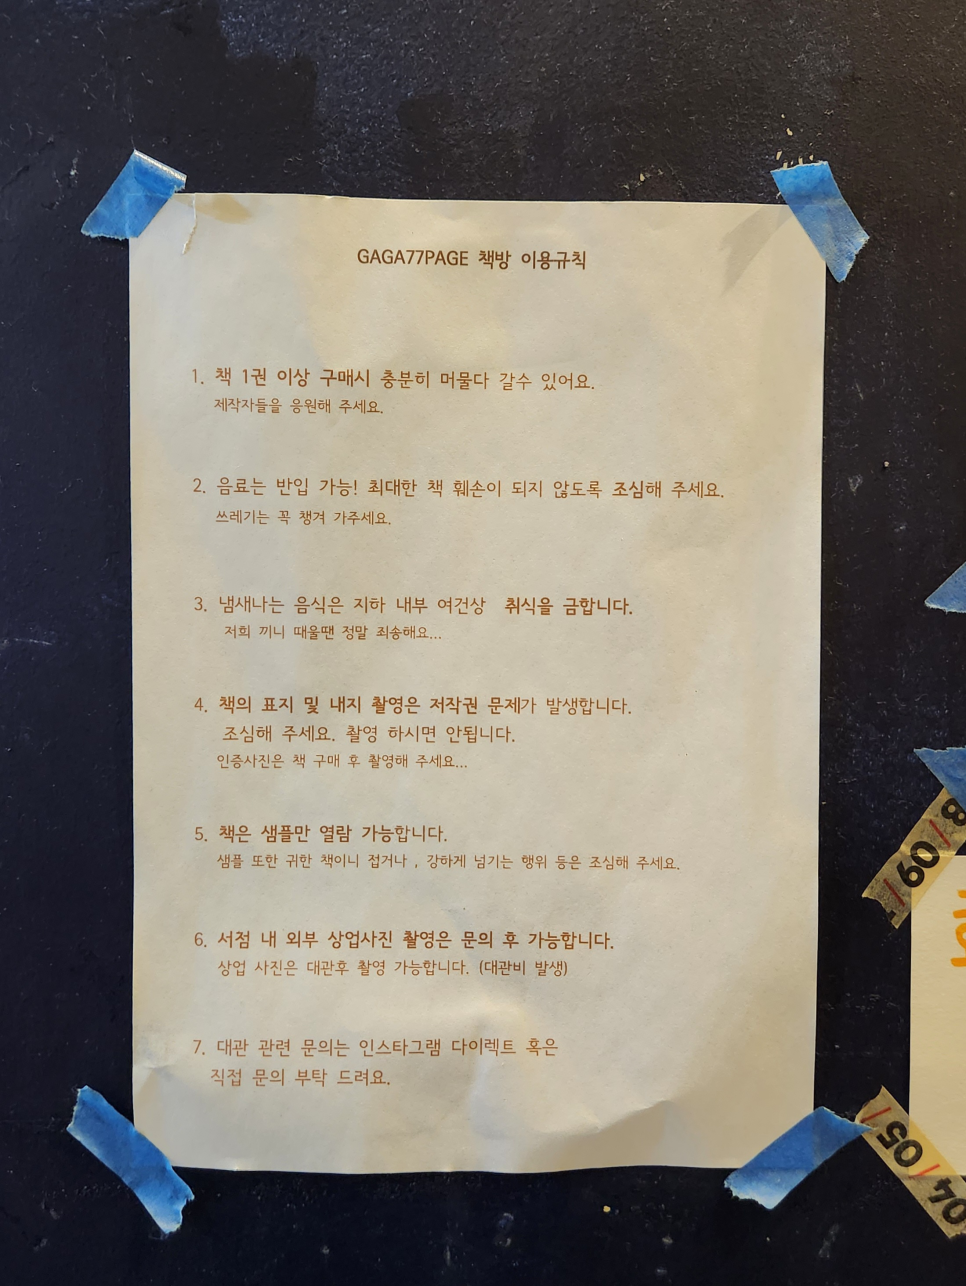 GAGA77PAGE 책방 이용규칙
1. 책 1권 이상 구매시 충분히 머물다 갈수 있어요.
제작자들을 응원해 주세요.
2. 음료는 반입 가능! 최대한 책 훼손이 되지 않도록 조심해 주세요.
쓰레기는 꼭 챙겨 가주세요.
3. 냄새나는 음식은 지하 내부 여건상 취식을 금합니다.
저희 끼니 때울땐 정말 죄송해요...
4. 책의 표지 및 내지 촬영은 저작권 문제가 발생합니다.
조심해 주세요. 촬영 하시면 안됩니다.
인증사진은 책 구매 후 촬영해 주세요...
5. 책은 샘플만 열람 가능합니다.
샘플 또한 귀한 책이니 접거나 , 강하게 넘기는 행위 등은 조심해 주세요.
6. 서점 내 외부 상업사진 촬영은 문의 후 가능합니다.
상업 사진은 대관후 촬영 가능합니다. (대관비 발생)
7. 대관 관련 문의는 인스타그램 다이렉트 혹은
직접 문의 부탁 드려요.
/ 09 /
/ 05 / 04